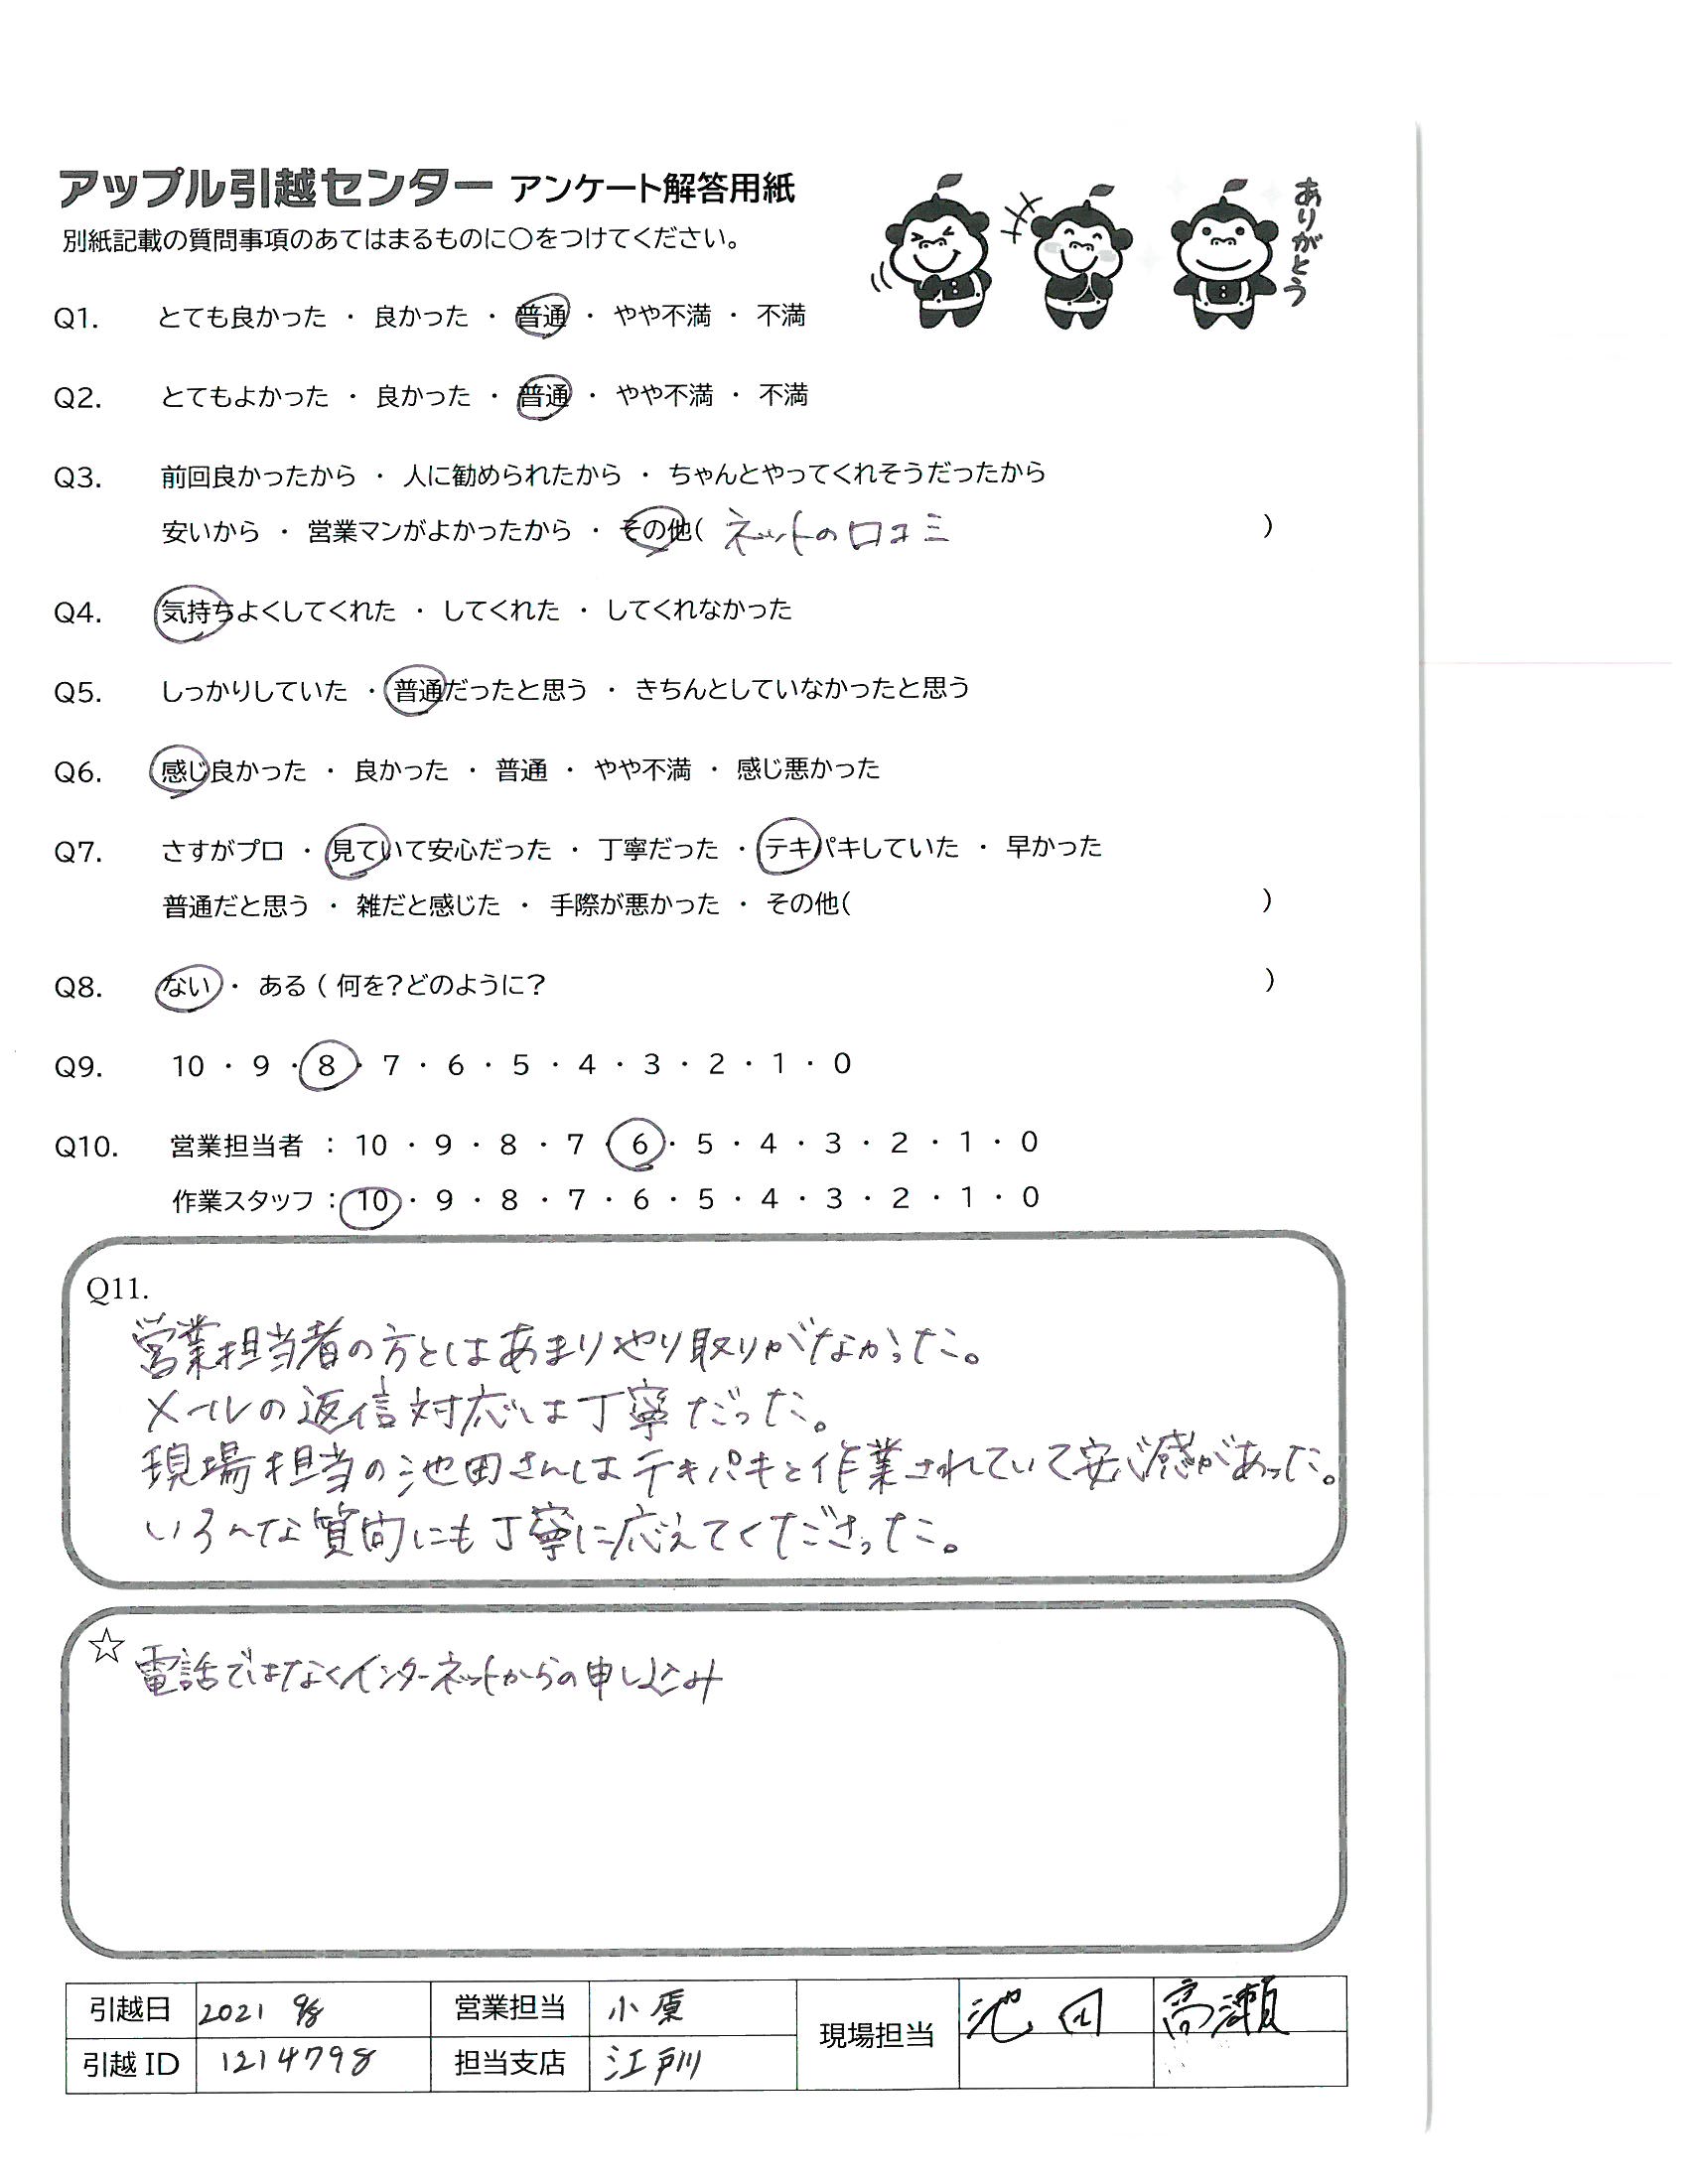 アップル引越センター アンケート解答用紙
ありがとう
別紙記載の質問事項のあてはまるものに○をつけてください。
Q1. とても良かった ・ 良かった ・ 普通 ・ やや不満 ・ 不満
Q2. とてもよかった ・ 良かった ・ 普通 ・ やや不満 ・ 不満
Q3. 前回良かったから ・ 人に勧められたから ・ ちゃんとやってくれそうだったから
安いから ・ 営業マンがよかったから ・ その他( ネットの口コミ )
Q4. 気持ちよくしてくれた ・ してくれた ・ してくれなかった
Q5. しっかりしていた ・ 普通だったと思う ・ きちんとしていなかったと思う
Q6. 感じ良かった ・ 良かった ・ 普通 ・ やや不満 ・ 感じ悪かった
Q7. さすがプロ ・ 見ていて安心だった ・ 丁寧だった ・ テキパキしていた ・ 早かった
普通だと思う ・ 雑だと感じた ・ 手際が悪かった ・ その他( )
Q8. ない ・ ある ( 何を?どのように? )
Q9. 10 ・ 9 ・ 8 ・ 7 ・ 6 ・ 5 ・ 4 ・ 3 ・ 2 ・ 1 ・ 0
Q10. 営業担当者 : 10 ・ 9 ・ 8 ・ 7 ・ 6 ・ 5 ・ 4 ・ 3 ・ 2 ・ 1 ・ 0
作業スタッフ : 10 ・ 9 ・ 8 ・ 7 ・ 6 ・ 5 ・ 4 ・ 3 ・ 2 ・ 1 ・ 0
Q11.
営業担当者の方とはあまりやり取りがなかった。
メールの返信対応は丁寧だった。
現場担当の池田さんはテキパキと作業されていて安心感があった。
いろんな質問にも丁寧に応えてくださった。
☆ 電話ではなくインターネットからの申し込み
引越日 2021 9/8 営業担当 小原 現場担当 池田 高瀬
引越 ID 1214798 担当支店 江戸川